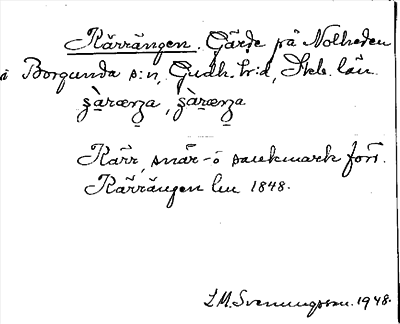 Kärrängen. Gärde på Nolheden
i Borgunda s:n, Gudh. h:d, Skb. län.
Kärr, snår- o sankmark förr.
Kärrängen lm 1848.
L.M. Svenungsson. 1948.